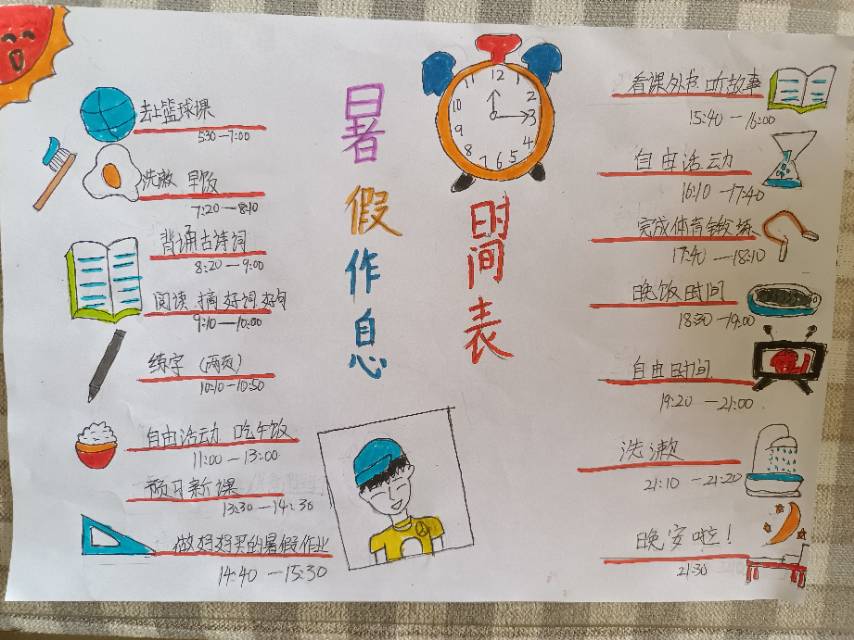 暑假作息
时间表
12
1
2
3
4
5
6
7
8
9
10
11
去上篮球课
5:30—7:00
洗漱 早饭
7:20—8:10
背诵古诗词
8:20—9:00
阅读 摘好词好句
9:10—10:00
练字（两页）
10:10—10:50
自由活动 吃午饭
11:00—13:00
预习新课
13:30—14:30
做妈妈买的暑假作业
14:40—15:30
看课外书 听故事
15:40—16:00
自由活动
16:10—17:40
完成体育锻炼
17:40—18:10
晚饭时间
18:30—19:00
自由时间
19:20—21:00
洗漱
21:10—21:20
晚安啦！
21:30